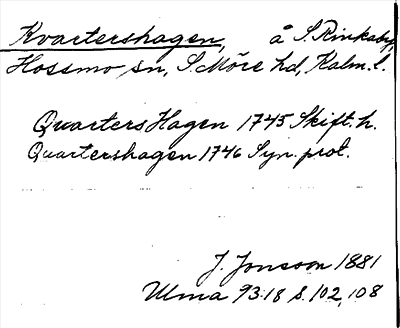 Kvartershagen, å S. Rinkaby,
Hossmo sn, S. Möre hd, Kalm. l.
Quarters Hagen 1745 Skift. h.
Quartershagen 1746 Syn. prot.
J. Jonsson 1881
Ulma 93:18 s. 102, 108